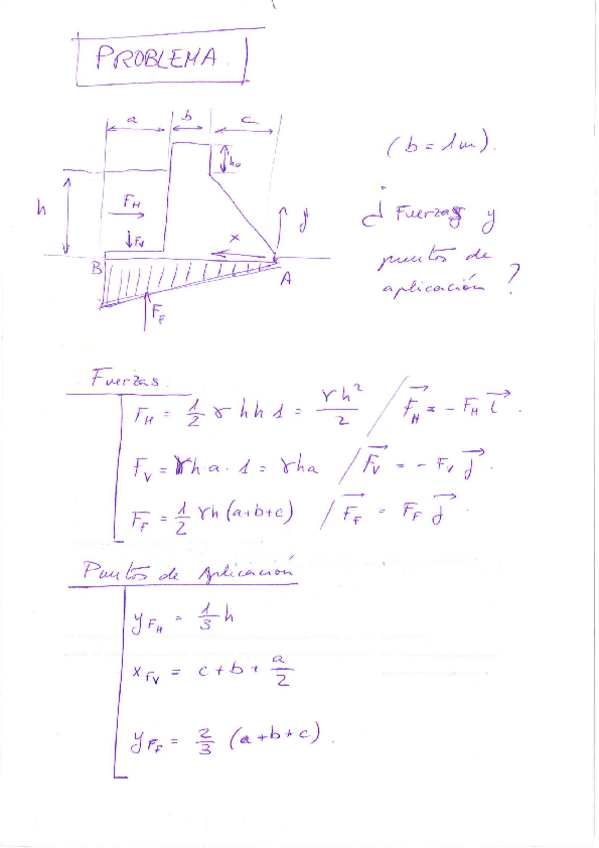 PROBLEMA
a b c
(b = 1m).
h₀
h
F_H
F_V
x
y
¿ Fuerzas y
puntos de
aplicación ?
B
A
F_F
Fuerzas.
F_H = 1/2 γ h h 1 = γh²/2 / F⃗_H = - F_H i⃗.
F_V = γha · 1 = γha / F⃗_V = - F_V j⃗.
F_F = 1/2 γh (a+b+c) / F⃗_F = F_F j⃗.
Puntos de Aplicación
y_{F_H} = 1/3 h
x_{F_V} = c + b + a/2
y_{F_F} = 2/3 (a+b+c).